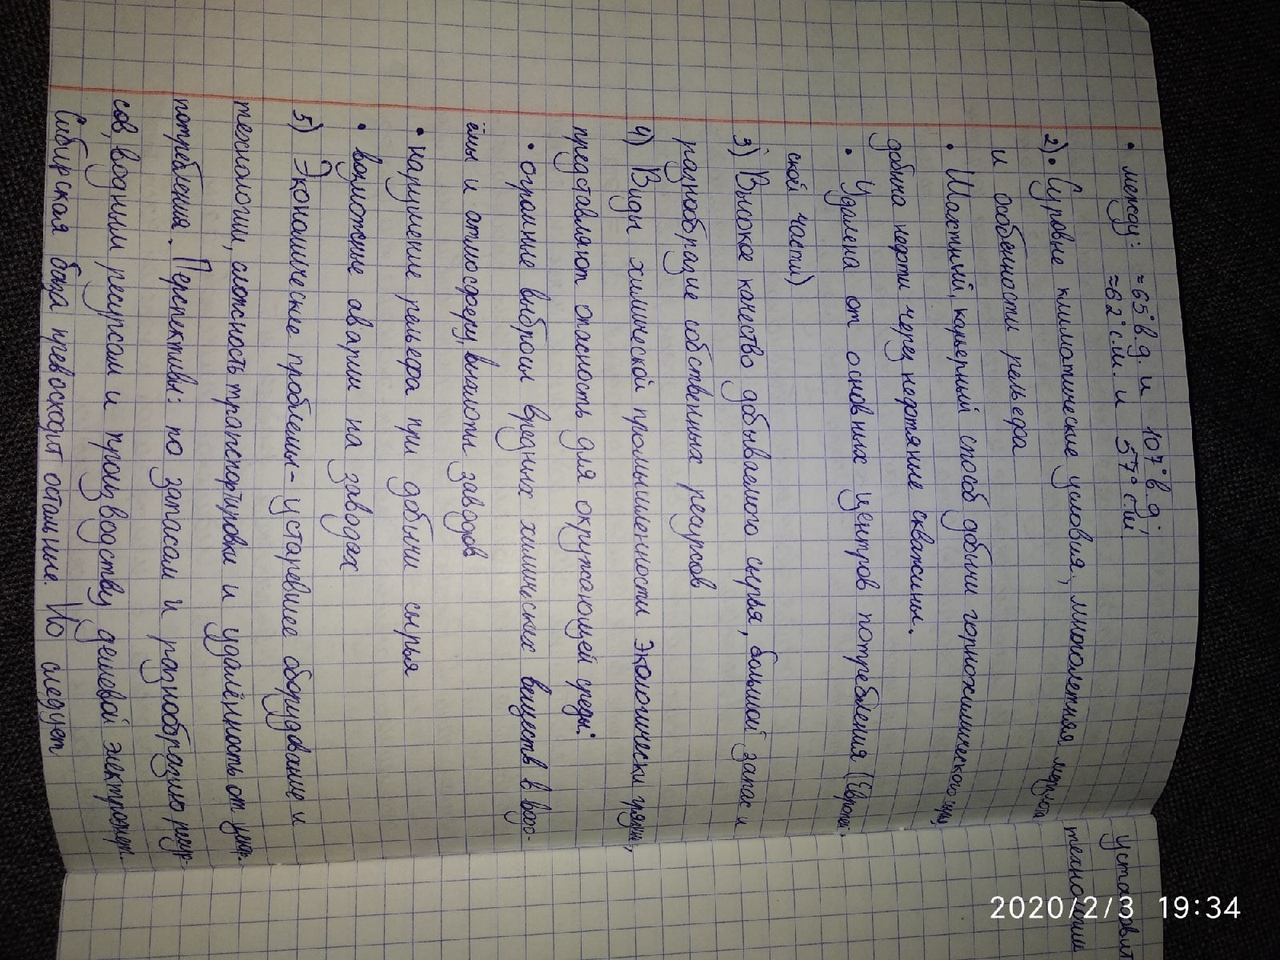 • между: ≈65° в.д. и 107° в.д.
≈62° с.ш. и 57° с.ш.
2) • Суровые климатические условия, многолетняя мерзлота
и особенности рельефа
• Шахтный, карьерный способ добычи горнохимического
добыча нефти через нефтяные скважины.
• Удалена от основных центров потребления (Европей-
ской части)
3) Высокое качество добываемого сырья, большой запас и
разнообразие собственных ресурсов
4) Виды химической промышленности экологически грязны,
представляют опасность для окружающей среды:
• огромные выбросы вредных химических веществ в водо-
ёмы и атмосферу, выхлопы заводов
• нарушение рельефа при добыче сырья
• возможные аварии на заводах
5) Экономические проблемы - устаревшее оборудование и
технологии, сложность транспортировки и удалённость от
потребления. Перспективы: по запасам и разнообразию ресур-
сов, водным ресурсам и производству дешёвой электроэнерг.
Сибирская база превосходит остальные. Но следует
установить
технологии
2020/2/3 19:34